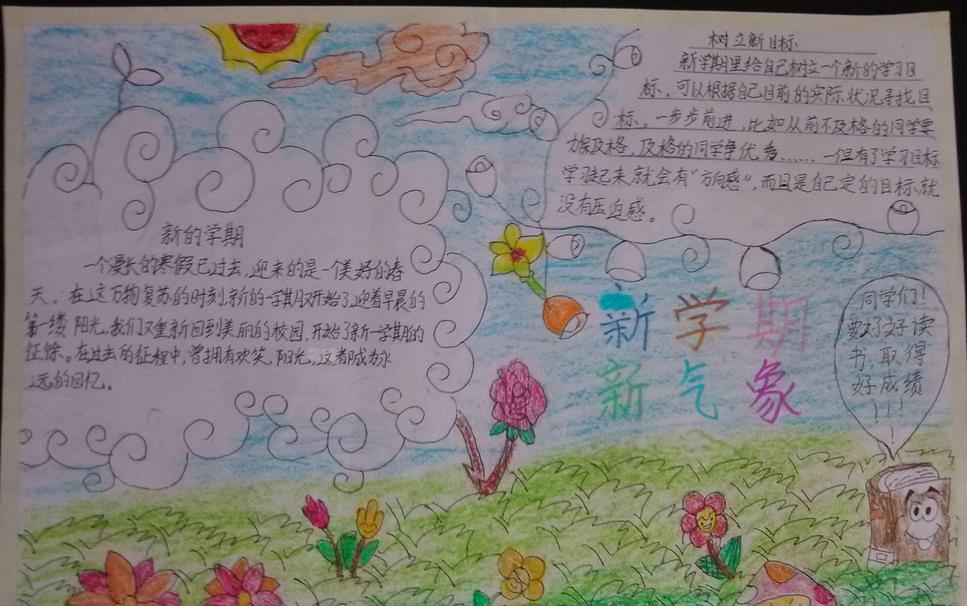 新的学期
一个漫长的寒假已过去,迎来的是一个美好的春
天,在这万物复苏的时刻,新的一学期又开始了,迎着早晨的
第一缕阳光,我们又重新回到美丽的校园,开始了新一学期的
征徐。在过去的征程中,曾拥有欢笑,阳光,这都成为永
远的回忆。
树立新目标
新学期里给自己树立一个新的学习目
标,可以根据自己目前的实际状况寻找目
标,一步步前进,比如从前不及格的同学要
力争及格,及格的同学争优秀……一但有了学习目标
学习起来,就会有“方向感”,而且是自己定的目标,就
没有压迫感。
新学期
新气象
同学们!
要好好读
书,取得
好成绩
!!!